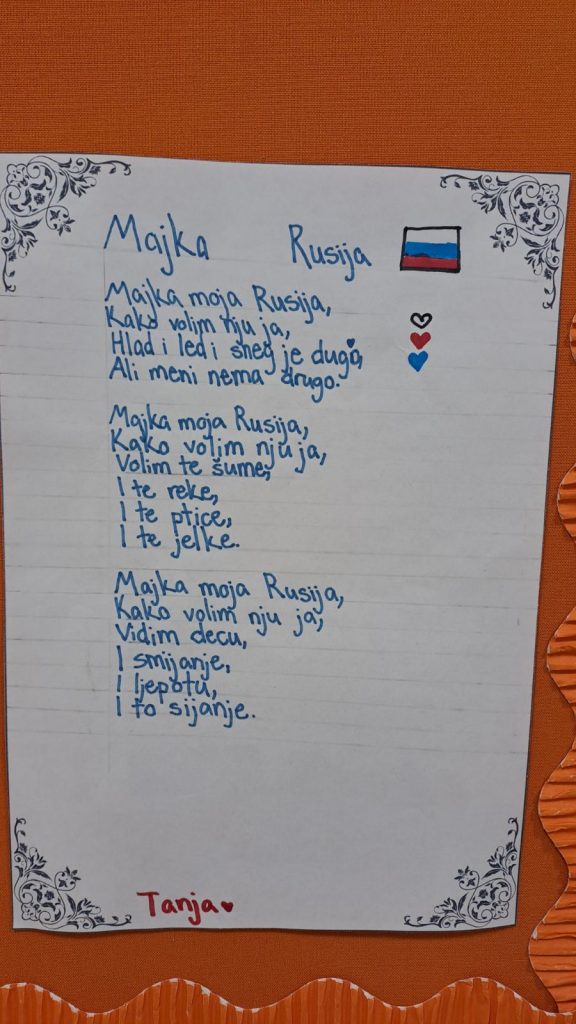 Majka Rusija
Majka moja Rusija,
Kako volim nju ja,
Hlad i led i sneg je dugo,
Ali meni nema drugo.
Majka moja Rusija,
Kako volim nju ja,
Volim te šume,
I te reke,
I te ptice,
I te jelke.
Majka moja Rusija,
Kako volim nju ja,
Vidim decu,
I smijanje,
I ljepotu,
I to sijanje.
Tanja